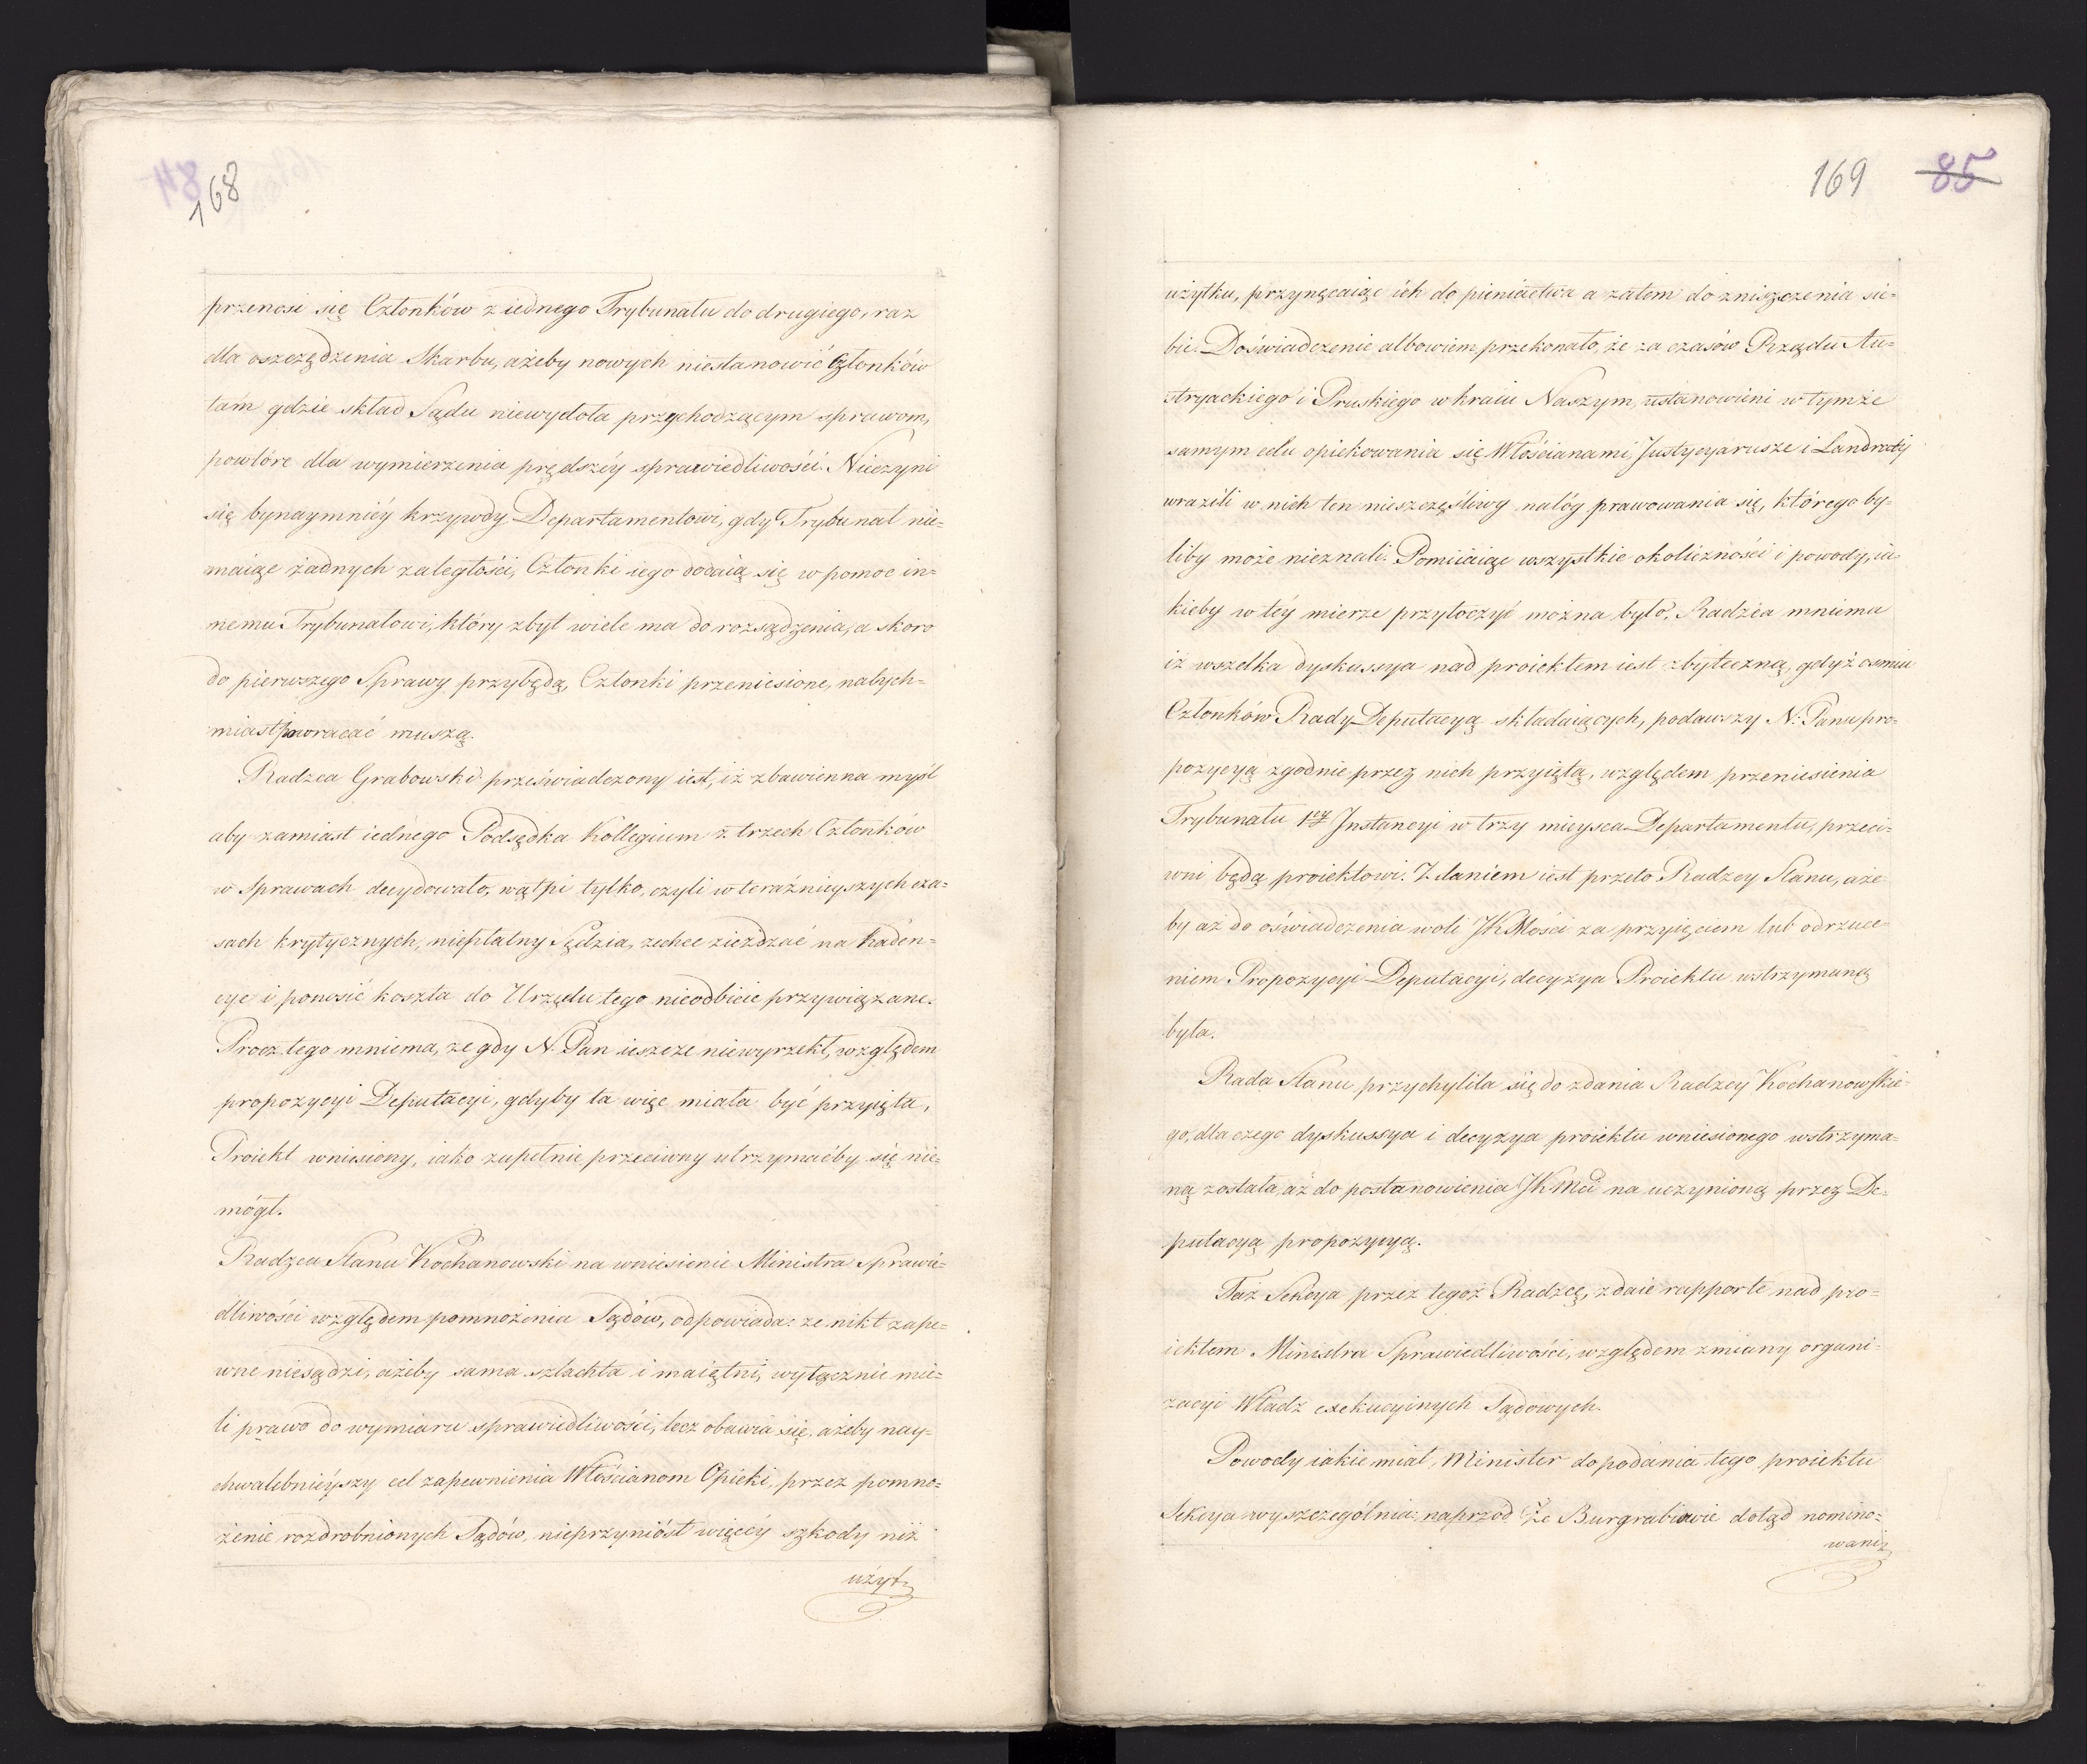 168
przenosi się Członków z iednego Trybunału do drugiego, raz
dla oszczędzenia Skarbu, ażeby nowych niestanowić Członków
tam gdzie skład Sądu niewydoła przychodzącym sprawom,
powtóre dla wymierzenia prędszéy sprawiedliwości. Nieczyni
się bynaymniéy krzywdy Departamentowi, gdy Trybunał nie=
maiąc żadnych zaległości, Członki iego dodaią się w pomoc in=
nemu Trybunałowi, który zbyt wiele ma do rozsądzenia, a skoro
do pierwszego Sprawy przybędą, Członki przeniesione, natych=
miast powracać muszą.
Radzca Grabowski przeświadczony iest, iż zbawienna myśl
aby zamiast iednego Podsędka Kollegium z trzech Członków
w sprawach decydowało, wątpi tylko, czyli w teraźnieyszych cza=
sach krytycznych, niepłatny Sędzia, zechce ziezdzać na Kaden=
cye i ponosić koszta do Urzędu tego nieodbicie przywiązane.
Procz tego mniema, ze gdy N. Pan ieszcze niewyrzekł, względem
propozycyi Deputacyi, gdyby ta więc miała być przyięta,
Proiekt wniesiony, iako zupełnie przeciwny utrzymaćby się nie=
mógł.
Radzca Stanu Kochanowski na wniesienie Ministra Sprawie=
dliwości względem pomnożenia Sądów, odpowiada: ze nikt zape=
wne niesądzi, ażeby sama szlachta i maiętni, wyłącznie mie=
li prawo do wymiaru sprawiedliwości, lecz obawia się, ażeby nay=
chwalebnieyszy cel zapewnienia Włościanom Opieki, przez pomno=
żenie rozdrobnionych Sądów, nieprzyniósł więcéy szkody niż
użyt=
169 85
użytku, przynęcaiąc ich do pieniactwa a zatem do zniszczenia sie=
bie. Doświadczenie albowiem przekonało, że za czasów Rządu Au=
stryackiego i Pruskiego w kraiu Naszym, ustanowieni w tymże
samym celu opiekowania się Włościanami, Justycyarusze i Landraty
wrazili w nich ten nieszczęśliwy nałóg prawowania się, którego by=
liby może nieznali. Pomiiaiąc wszystkie okoliczności i powody, ia=
kieby w téy mierze przytoczyć można było, Radzca mniema
iż wszelka dyskussya nad proiektem iest zbyteczną, gdyż osmiu
Członków Rady Deputacyą składaiących, podawszy N. Panu pro=
pozycyą zgodnie przez nich przyiętą, względem przeniesienia
Trybunału 1éy Instancyi w trzy mieysca Departamentu, przeci=
wni będą proiektowi. Zdaniem iest przeto Radzcy Stanu, aże=
by aż do oświadczenia woli JKMości za przyięciem lub odrzuce=
niem Propozycyi Deputacyi, decyzya Proiektu wstrzymaną
była.
Rada Stanu przychyliła się do zdania Radzcy Kochanowskie=
go, dla czego dyskussya i decyzya proiektu wniesionego wstrzyma=
ną została, aż do postanowienia JKMci na uczynioną przez De=
putacyą propozycyą.
Taż Sekcya przez tegoż Radzcę, zdaie rapporte nad pro=
iektem Ministra Sprawiedliwości, względem zmiany organi=
zacyi Władz exekucyinych Sądowych.
Powody iakie miał, Minister do podania tego proiektu
Sekcya wyszczególnia: naprzod Ze Burgrabiowie dotąd nomino=
wani